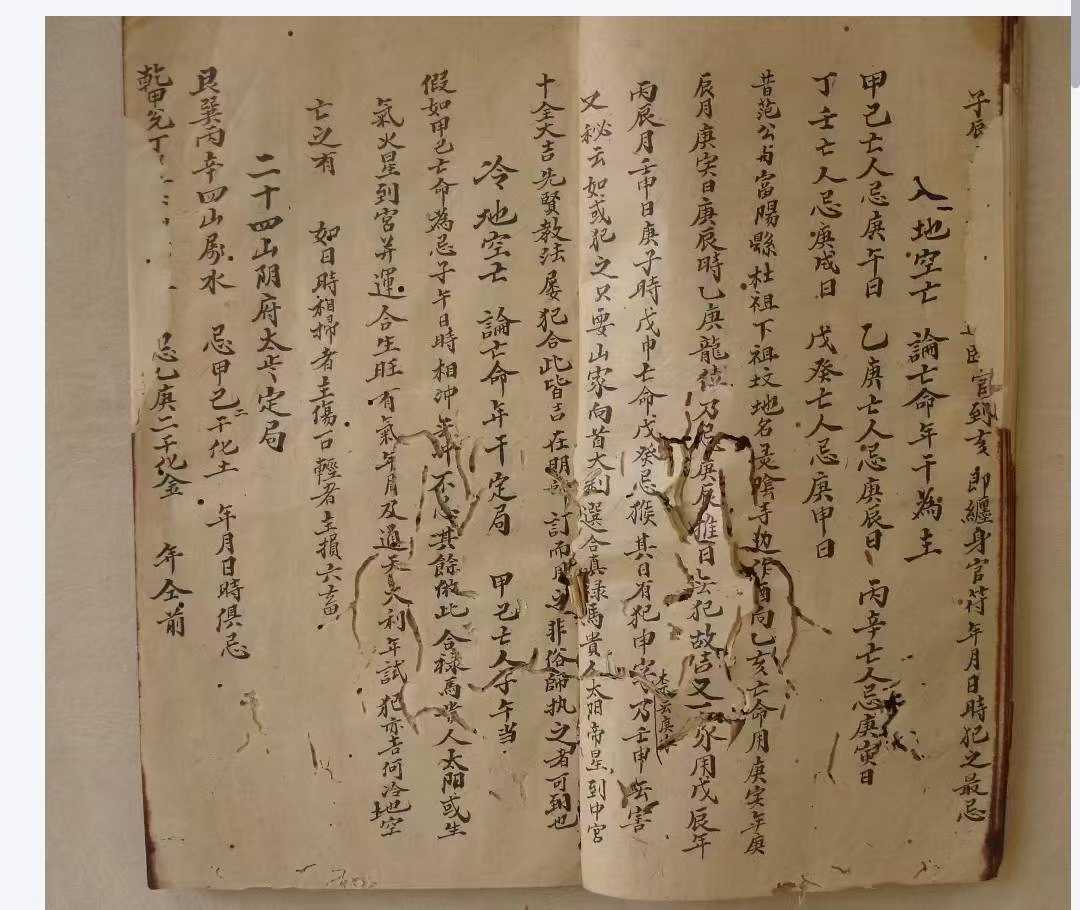 子辰 官到亥 即纏身官符年月日時犯之最忌
入地空亡 論亡命年干為主
甲己亡人忌庚午日 乙庚亡人忌庚辰日 丙辛亡人忌庚寅日
丁壬亡人忌庚戌日 戊癸亡人忌庚申日
昔范公与富陽縣杜祖下祖坟地名灵隂寺 酉向乙亥亡命用庚寅年庚
辰月庚寅日庚辰時乙庚龍 乃名庚辰 日 法犯故吉又一家用戊辰年
丙辰月壬申日庚子時戊申亡命戊癸忌猴其日有犯申字乃壬申 害
云庚
又秘云如或犯之只要山家向首大利選合真禄馬貴人太阳帝星到中宮
十全大吉先賢教法屡犯合此皆吉在明 訂而用之非俗師执之者可到也
冷地空亡 論亡命年干定局 甲己亡人子午当
假如甲己亡命為忌子午日時相冲 不忌其餘倣此合禄馬貴人太阳或生
氣火星到宮并運合生旺有氣年月及通天大利年試犯亦吉何冷地空
亡之有 如日時相掃者主傷 輕者主損六畜
二十四山阴府太歩定局
艮巽丙辛四山属水 忌甲己二干化土 年月日時俱忌
乾甲兑丁 忌乙庚二干化金 年仝前